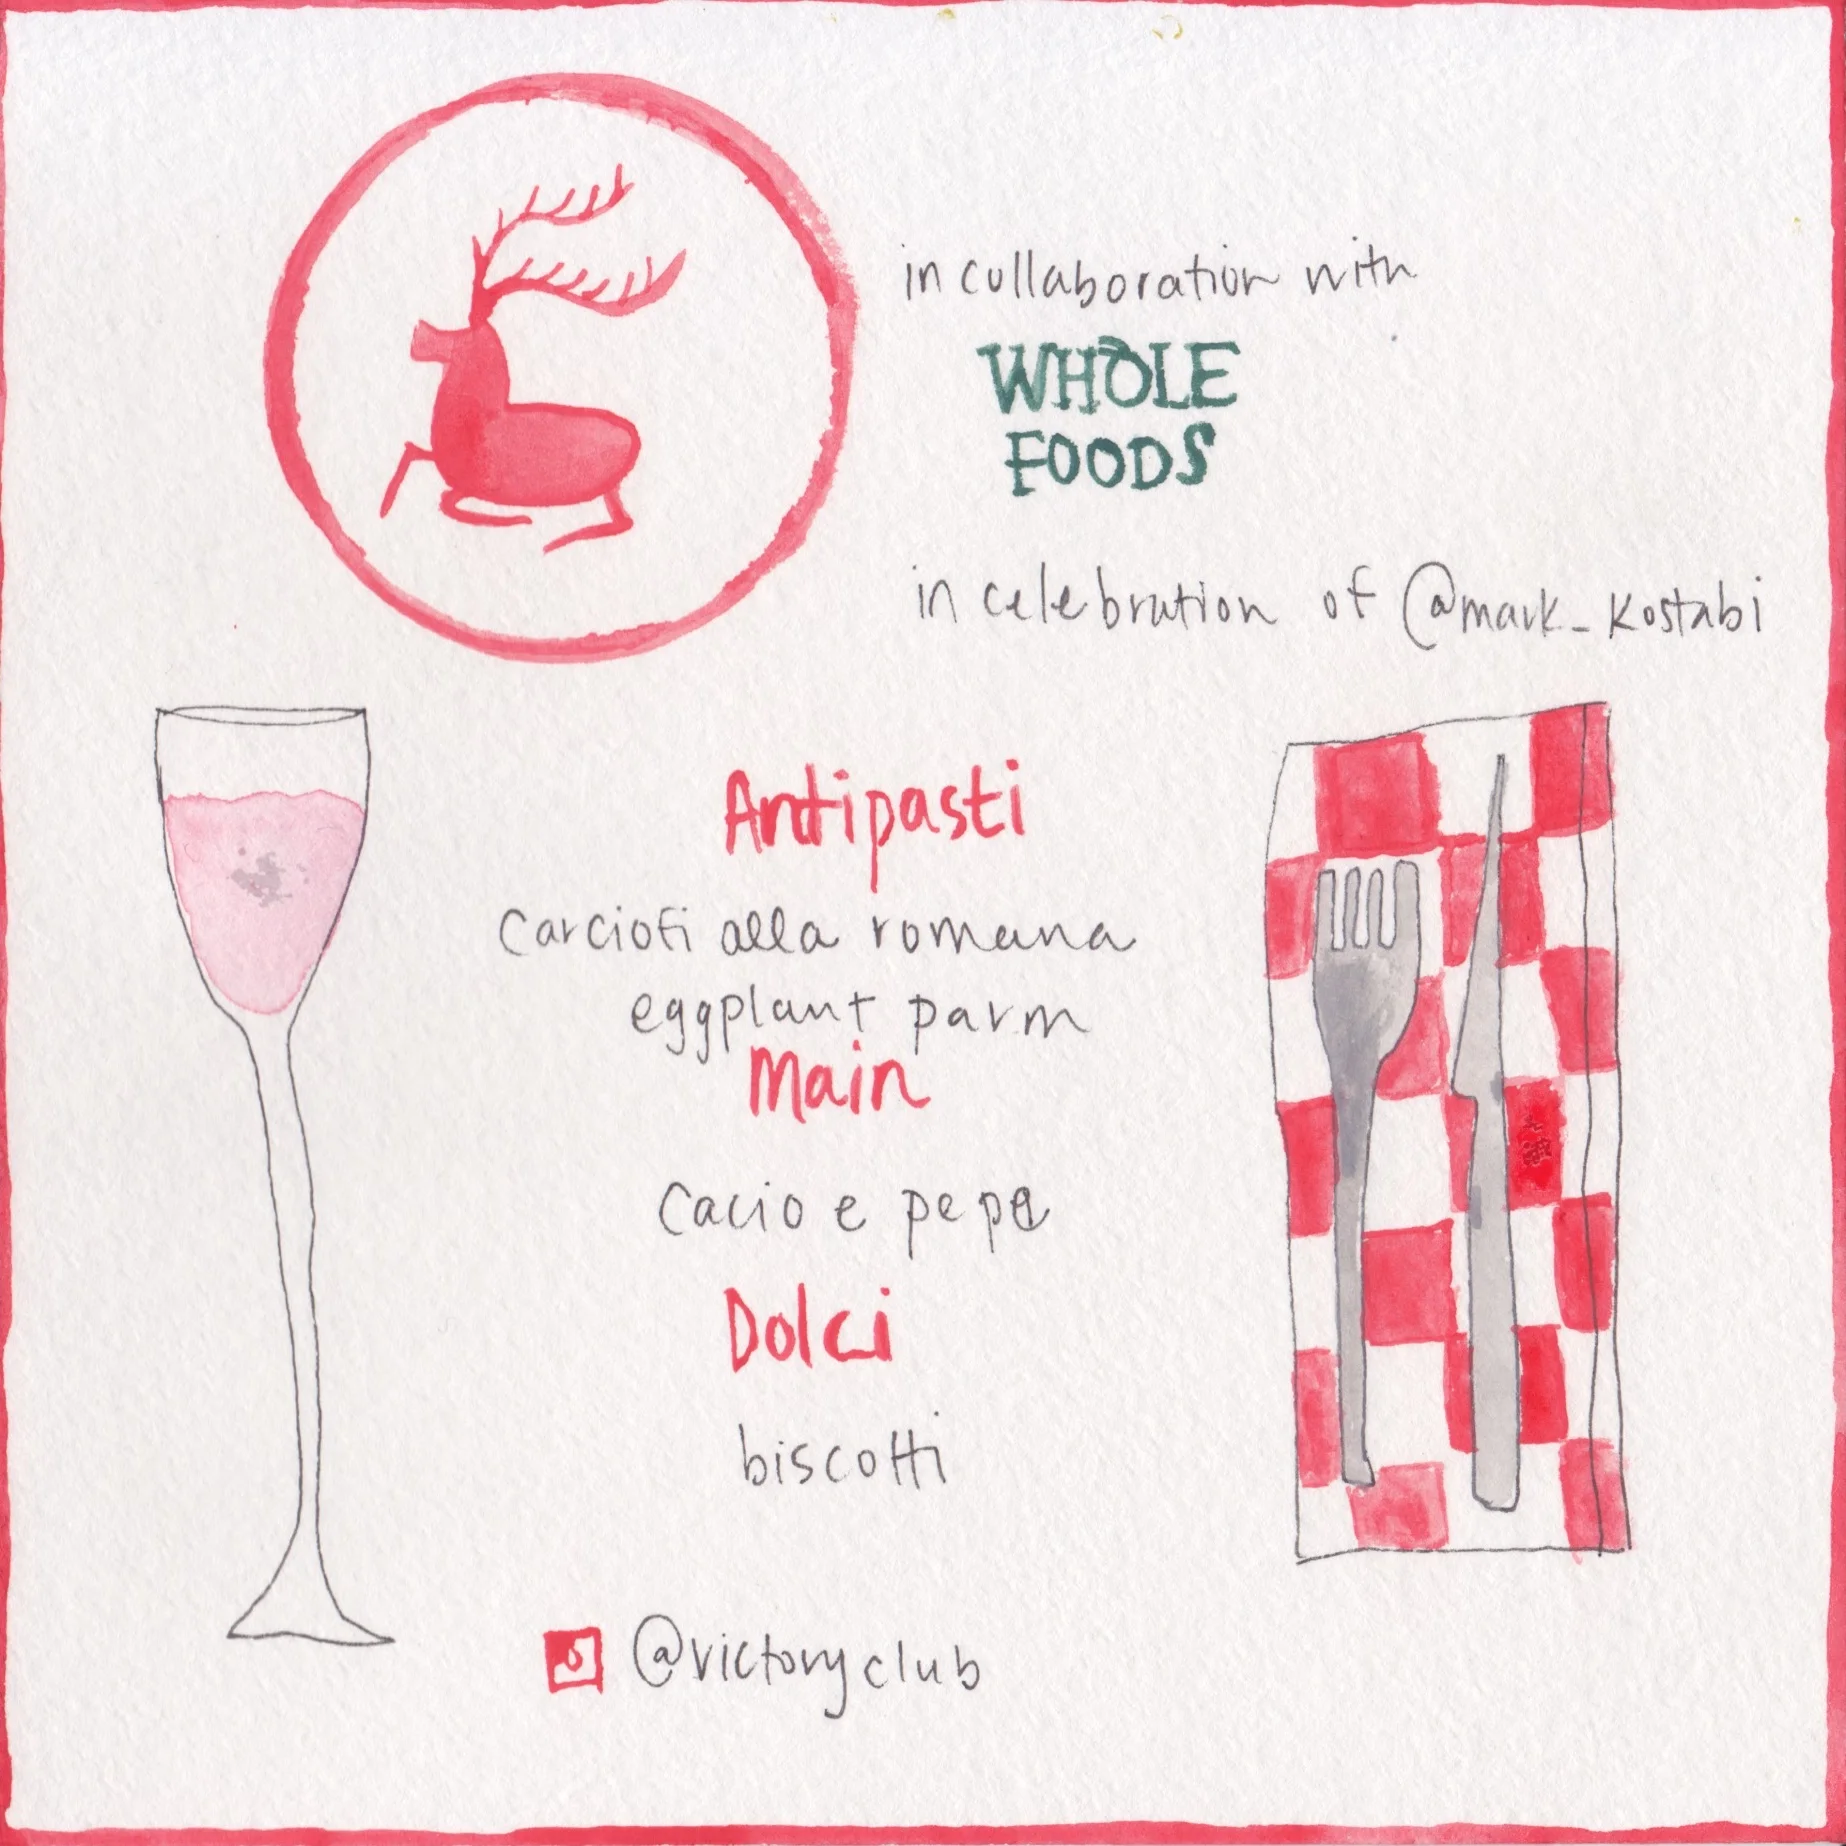 in collaboration with
WHOLE
FOODS
in celebration of @mark_kostabi
Antipasti
carciofi alla romana
eggplant parm
Main
cacio e pepe
Dolci
biscotti
@victoryclub